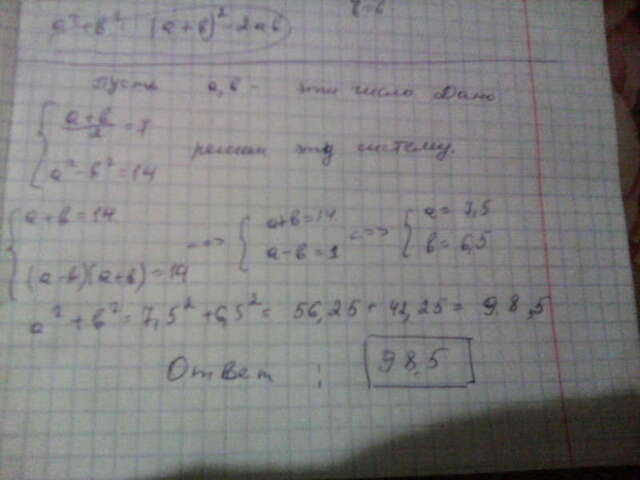 a² + b² = (a+b)² - 2ab
b=6
Пусть a, b - эти числа Дано
{ (a+b)/2 = 7
решим эту систему.
a² - b² = 14
{ a+b = 14
(a-b)(a+b) = 14
<=> { a+b = 14
a-b = 1
<=> { a = 7,5
b = 6,5
a² + b² = 7,5² + 6,5² = 56,25 + 42,25 = 98,5
Ответ : 98,5